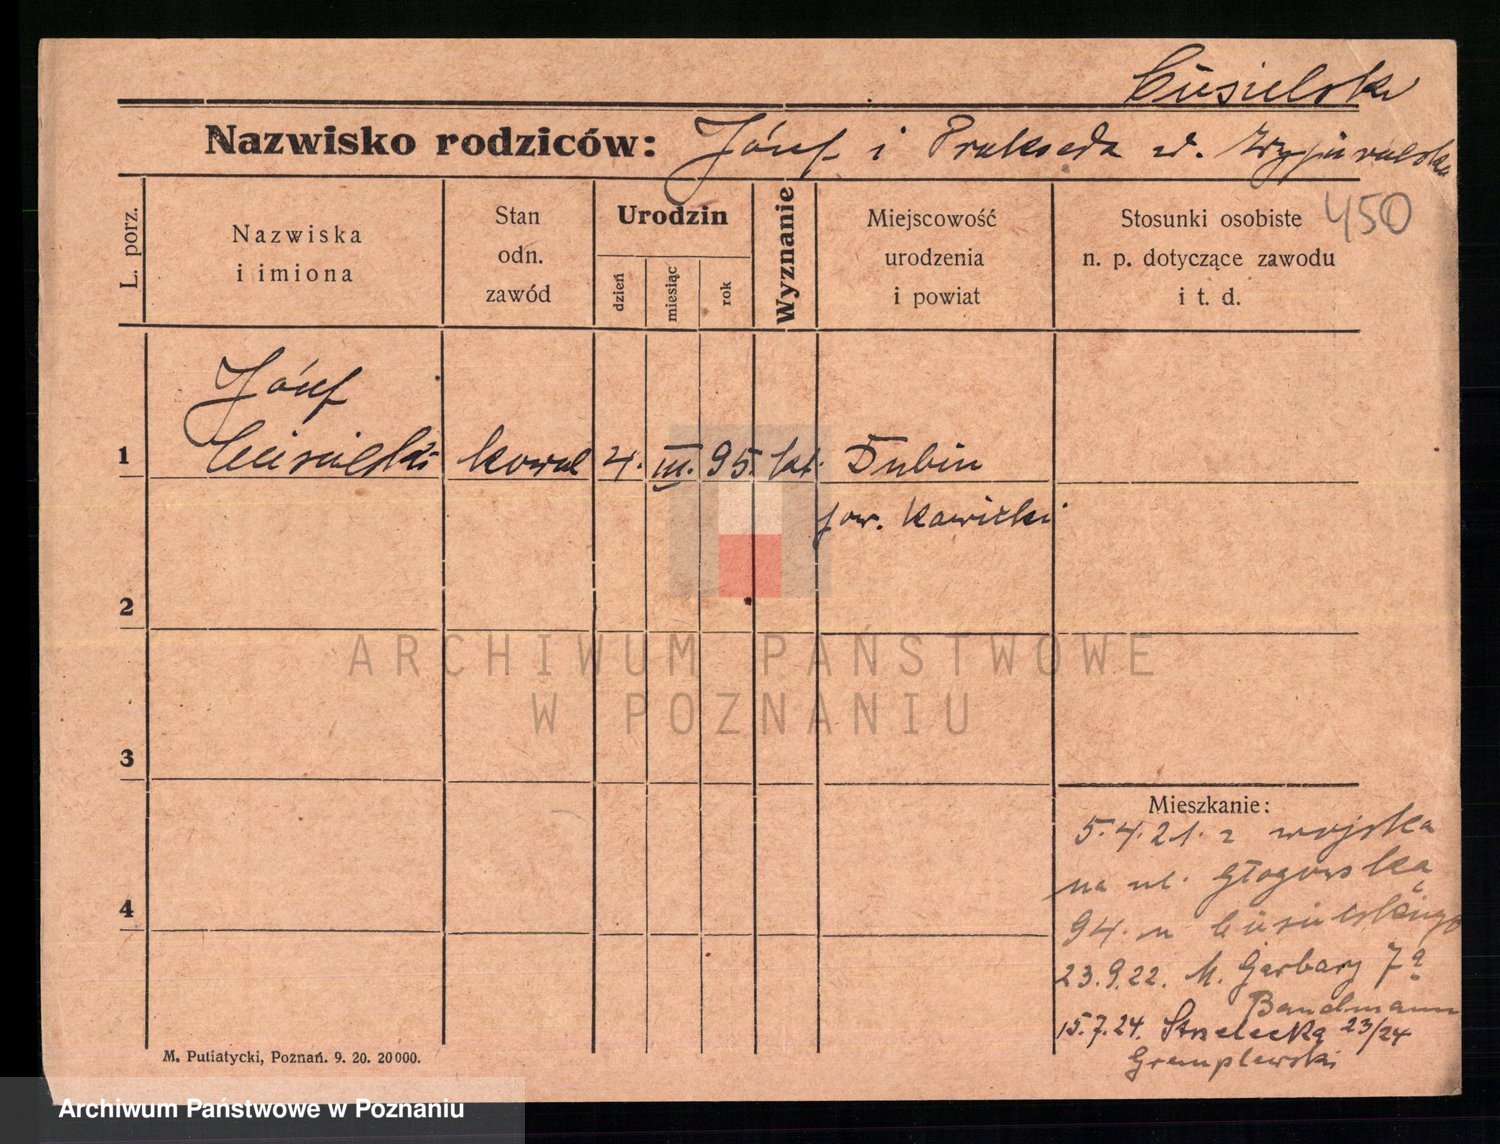 Ciesielski
Nazwisko rodziców: Józef i Prakseda d.
450
L. porz.
Nazwiska i imiona
Stan odn. zawód
Urodzin
dzień
miesiąc
rok
Wyznanie
Miejscowość urodzenia i powiat
Stosunki osobiste n. p. dotyczące zawodu i t. d.
Józef
1 Ciesielski kowal 4. III. 95. kat. Dubin
pow. Rawicki
2
3
4
Mieszkanie:
5.4.21. z wojska
na ul. Głogowską
94. u Ciesielskiego
23.9.22. M. Garbary 7a
Bandmann
15.7.24. Strzelecka 23/24
Gremplewski
M. Putiatycki, Poznań. 9. 20. 20000.
ARCHIWUM PAŃSTWOWE
W POZNANIU
Archiwum Państwowe w Poznaniu